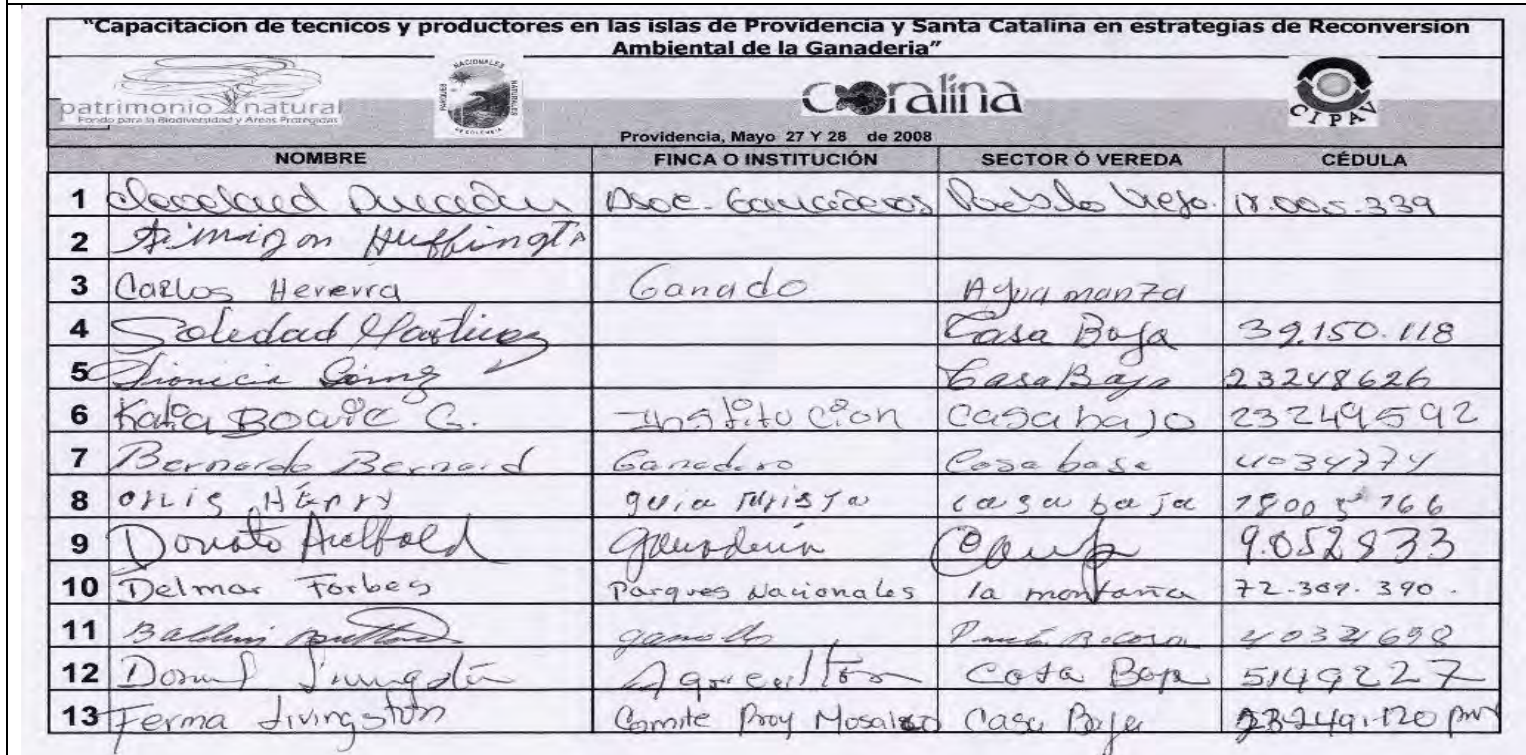 "Capacitacion de tecnicos y productores en las islas de Providencia y Santa Catalina en estrategias de Reconversion
Ambiental de la Ganaderia"
patrimonio natural
Fondo para la Biodiversidad y Areas Protegidas
PARQUES NACIONALES NATURALES
DE COLOMBIA
coralina
CIPAV
Providencia, Mayo 27 Y 28 de 2008
NOMBRE FINCA O INSTITUCIÓN SECTOR Ó VEREDA CÉDULA
1 Asoc. Ganaderos Pueblo Viejo. 18.005.339
2 Huffington
3 Carlos Hererra Ganado Agua manza
4 Soledad Martinez Casa Baja 39.150.118
5 Dionicia Casa Baja 23248626
6 Katia Bowie G. Institucion Casa bajo 23249592
7 Bernardo Bernard Ganadero Casa base 4034774
8 Henry guia turista casa baja 18005766
9 Donato ganaderia 9.052833
10 Delmar Forbes Parques Nacionales la montaña 72.309.390.
11 ganado Punta Rocosa
12 Livingston Agricultor Casa Baja 5149227
13 Ferma Livingston Comite Proy Mosaico Casa Baja